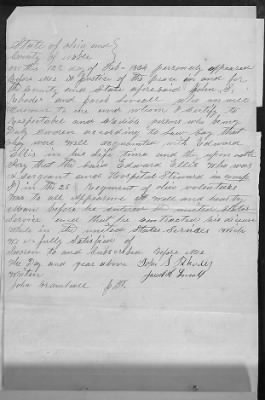 State of Ohio and
County of Noble
on this 12 day of Feb 1864 personally appeared
before me a Justice of the peace in and for
the County and State aforesaid John S.
Rhodes and who
to me whom I certify to
respectable and persons who being
Duly Sworn according to Law Say that
they were well acquainted with Edward
Ellis in his life time and they upon oath
Say that the said Edward Ellis who was
a Sergeant and Hospital Steward in comp
in the 25 Regiment of ohio volunteers
was to all appearance a well and healthy
before he entered the united States
Service and that he contracted his disease
while in the united States Services which
we are fully Satisfied of
Sworn to and Subscribed before me
the Day and year above John S Rhodes
written
John